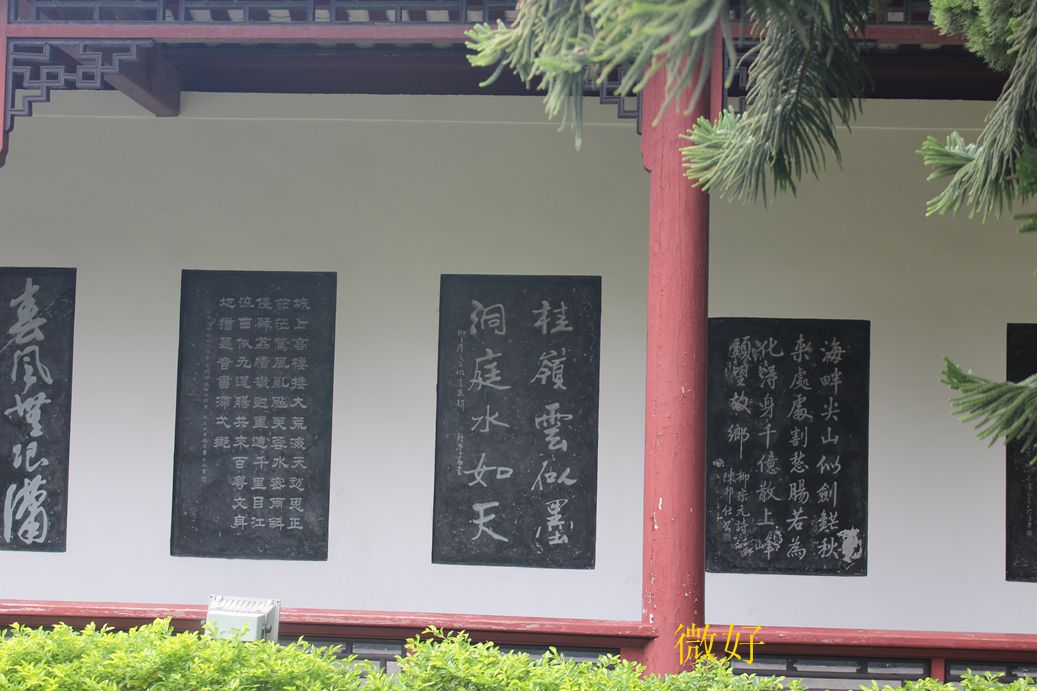 海畔尖山似劍鋩秋
来處處割愁腸若為
化得身千億散上峰
頭望故鄉
柳宗元詩
桂嶺雲似墨
洞庭水如天
城上高樓接大荒海天愁思正
茫茫驚風亂颭芙蓉水密雨斜
侵薜荔牆嶺樹重遮千里目江
流曲似九迴腸共來百粤文身
地猶是音書滯一鄉
春風無限瀟
微好